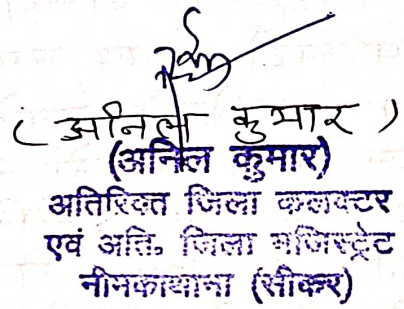 ( अनिल कुमार )
(अनिल कुमार)
अतिरिक्त जिला कलक्टर
एवं अति. जिला मजिस्ट्रेट
नीमकाथाना (सीकर)